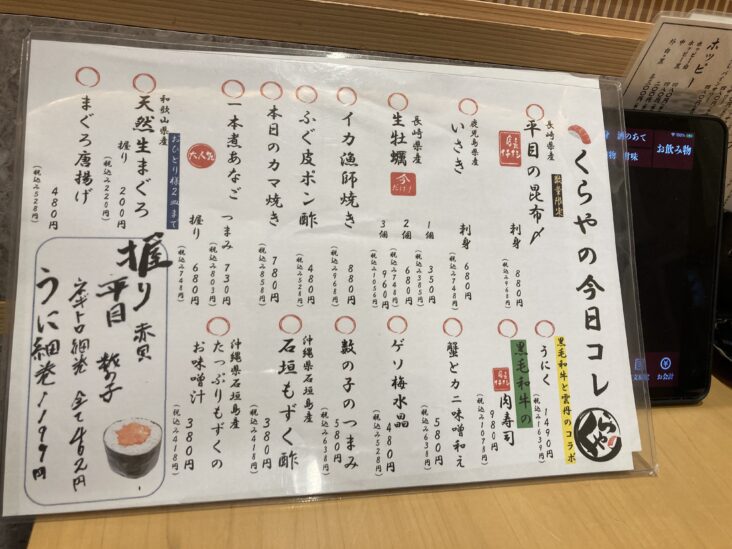 くらやの今日コレ
くらや
長崎県産
数量限定
平目の昆布〆
刺身 880円
(税込み968円)
鹿児島県産
いさき
刺身 680円
(税込み748円)
長崎県産
生牡蠣
今だけ!
1個 350円
(税込み385円)
2個 680円
(税込み748円)
3個 960円
(税込み1056円)
イカ漁師焼き
880円
(税込み968円)
ふぐ皮ポン酢
480円
(税込み528円)
本日のカマ焼き
780円
(税込み858円)
一本煮あなご
大人気
つまみ 730円
(税込み803円)
握り 680円
(税込み748円)
おひとり様2皿まで
和歌山県産
天然生まぐろ
握り 200円
(税込み220円)
まぐろ唐揚げ
480円
(税込み528円)
黒毛和牛と雲丹のコラボ
うにく 1490円
(税込み1639円)
黒毛和牛の
肉寿司
980円
(税込み1078円)
蟹とカニ味噌和え
580円
(税込み638円)
ゲソ梅水晶
480円
(税込み528円)
数の子のつまみ
580円
(税込み638円)
沖縄県石垣島産
石垣もずく酢
380円
(税込み418円)
沖縄県石垣島産
たっぷりもずくの
お味噌汁
380円
(税込み418円)
握り 赤貝
平目 数の子
ネギトロ細巻 全て462円
うに細巻 1,199円
ホッピー
酒のあて
お飲み物
お会計